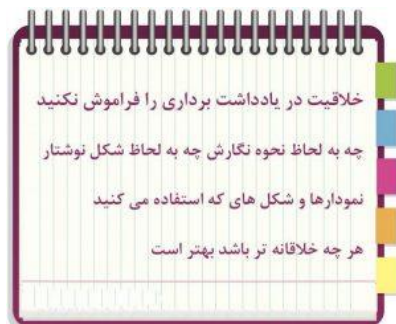 خلاقیت در یادداشت برداری را فراموش نکنید
چه به لحاظ نحوه نگارش چه به لحاظ شکل نوشتار
نمودارها و شکل های که استفاده می کنید
هر چه خلاقانه تر باشد بهتر است